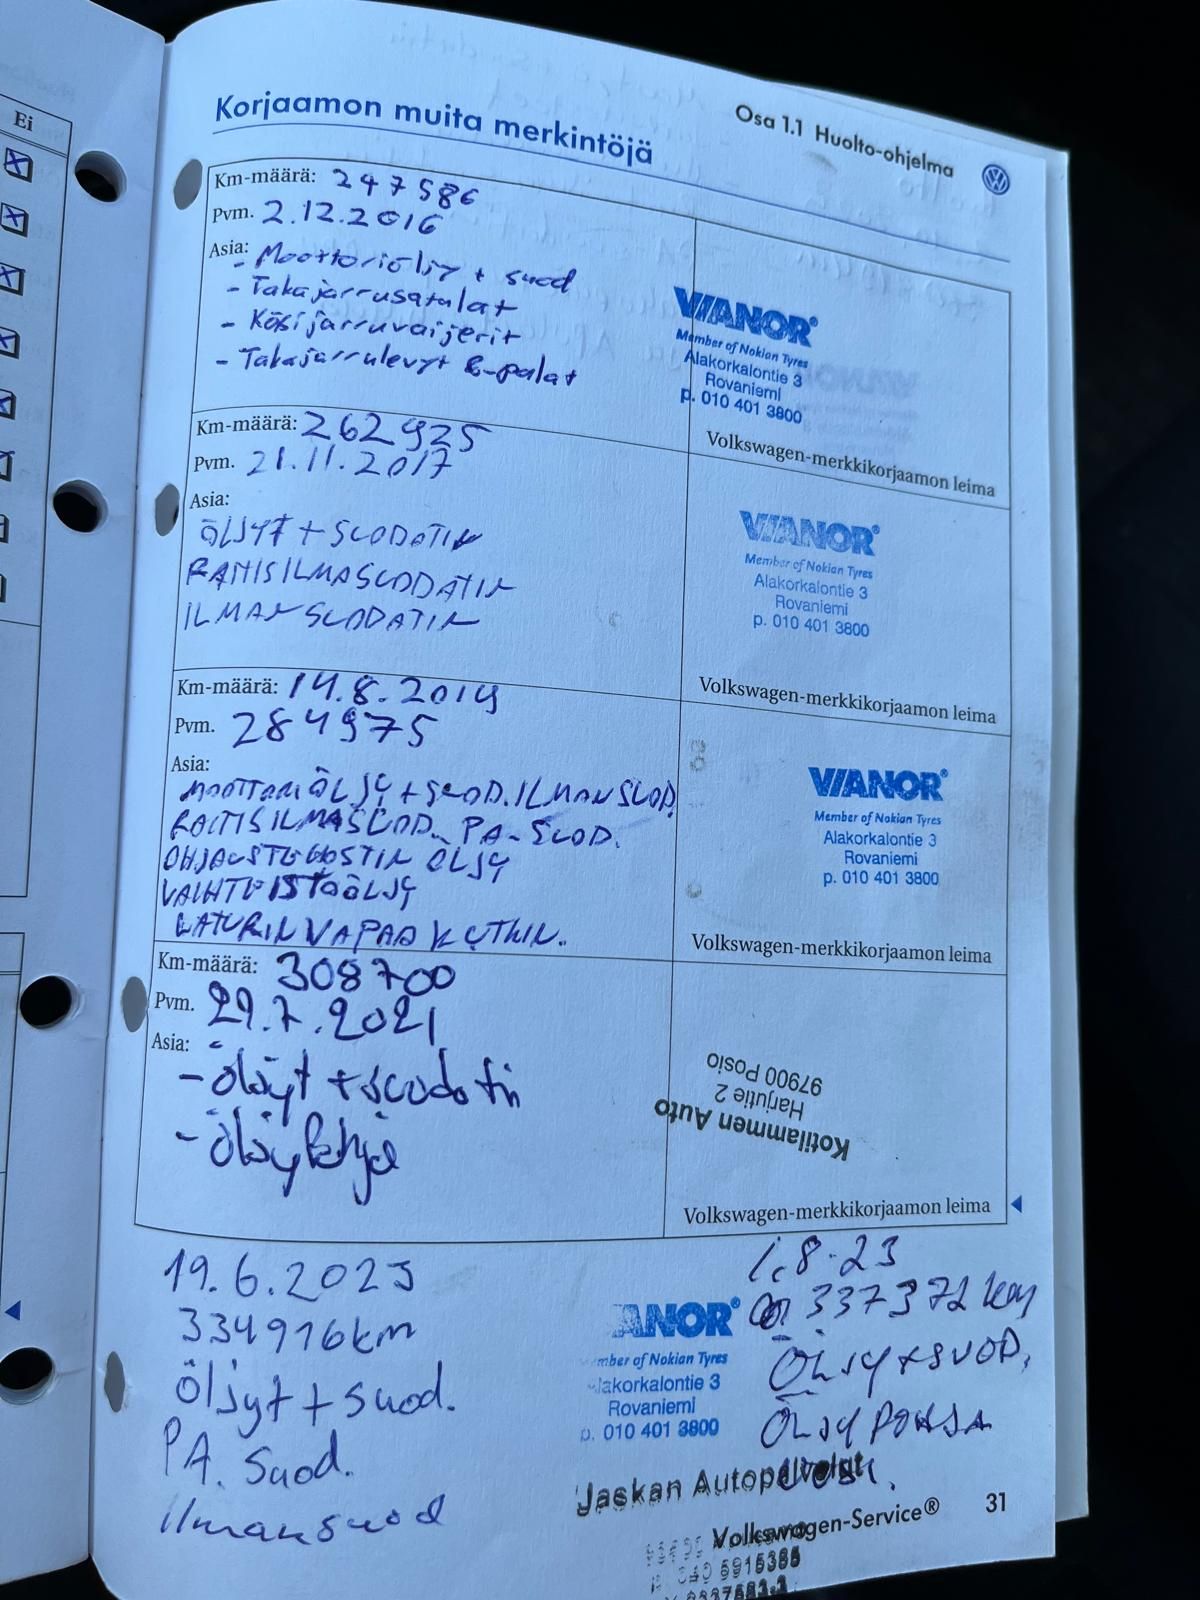 Ei
Osa 1.1 Huolto-ohjelma
Korjaamon muita merkintöjä
Km-määrä: 247586
Pvm. 2.12.2016
Asia:
- Moottoriöljy + suod
- Takajarrusatulat
- Käsijarruvaijerit
- Takajarrulevyt & -palat
VIANOR
Member of Nokian Tyres
Alakorkalontie 3
Rovaniemi
p. 010 401 3800
Volkswagen-merkkikorjaamon leima
Km-määrä: 262925
Pvm. 21.11.2017
Asia:
ÖLJYT + SUODATIN
RAITISILMASUODATIN
ILMAN SUODATIN
VIANOR
Member of Nokian Tyres
Alakorkalontie 3
Rovaniemi
p. 010 401 3800
Volkswagen-merkkikorjaamon leima
Km-määrä: 14.8.2019
Pvm. 284975
Asia:
MOOTTORIÖLJY + SUOD. ILMANSUOD.
RAITISILMASUOD. PA-SUOD.
OHJAUSTEHOSTIN ÖLJY
VAIHTEISTOÖLJY
LATURIN VAPAA KYTKIN.
VIANOR
Member of Nokian Tyres
Alakorkalontie 3
Rovaniemi
p. 010 401 3800
Volkswagen-merkkikorjaamon leima
Km-määrä: 308700
Pvm. 29.7.2021
Asia:
- öljyt + suodatin
- öljypohja
Kotilammen Auto
Harjutie 2
97900 Posio
Volkswagen-merkkikorjaamon leima
19.6.2023
334916km
Öljyt + suod.
PA. Suod.
Ilmansuod
ANOR
mber of Nokian Tyres
lakorkalontie 3
Rovaniemi
p. 010 401 3800
1.8.23
337372 km
ÖLJY + SUOD,
ÖLJY POHJA
Jaskan Autopalvelut
Volkswagen-Service®
31
040 5915385